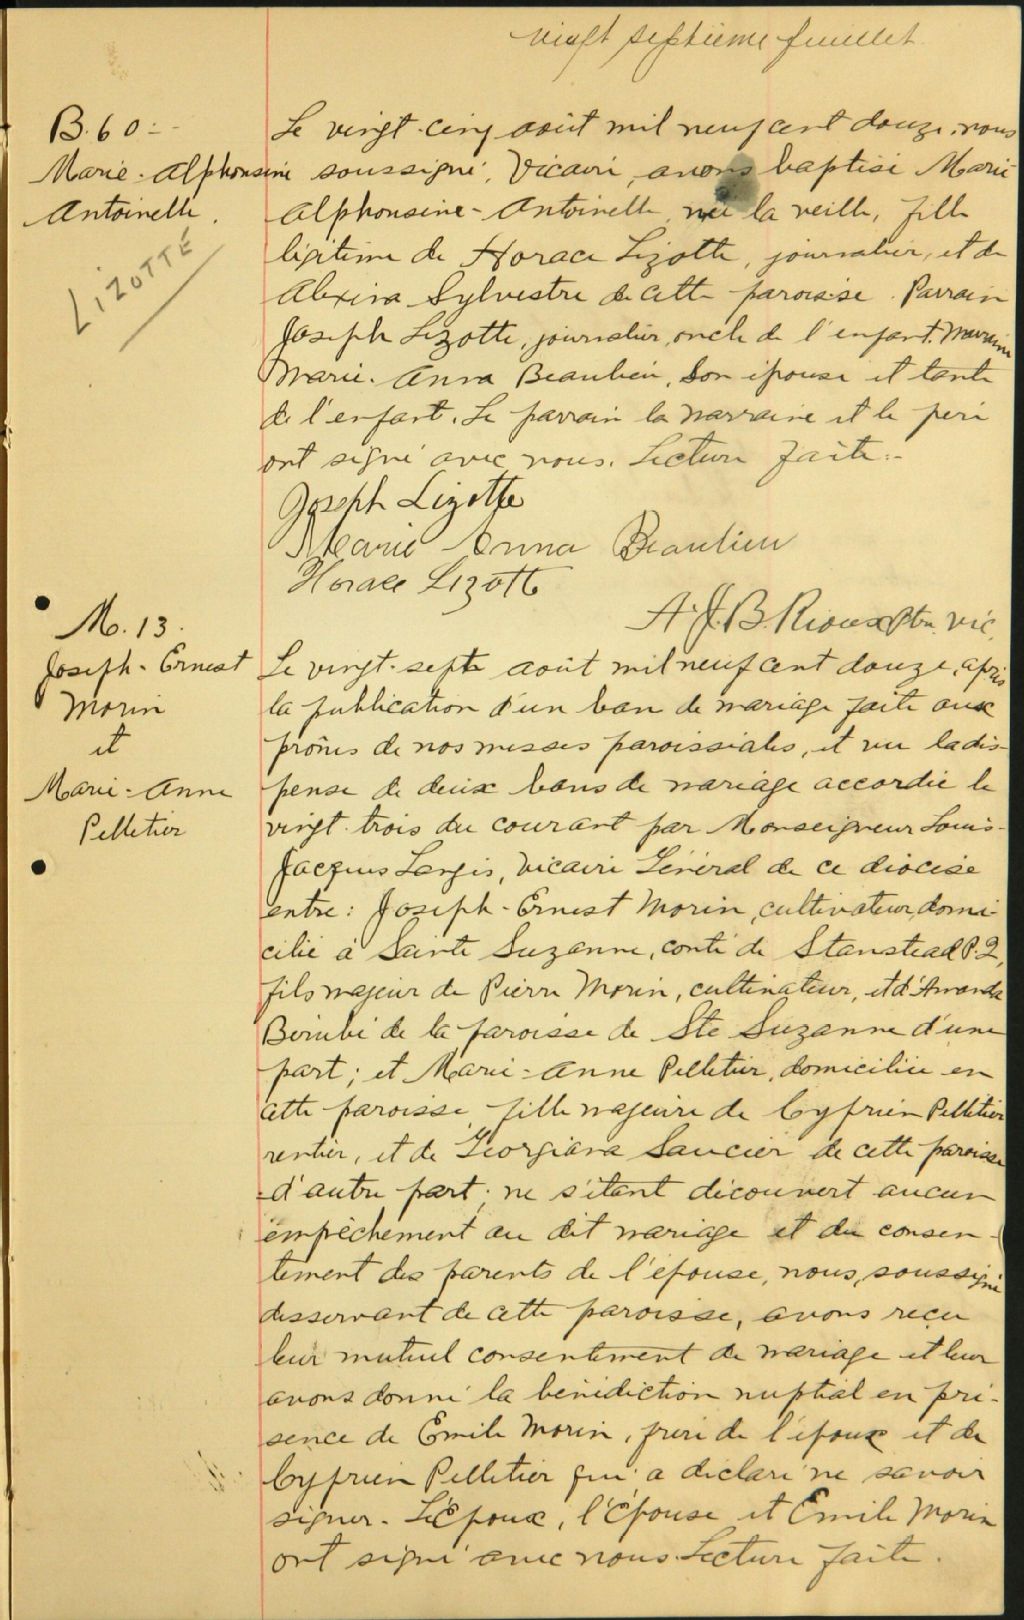 vingt septième feuillet
B. 60 :-
Marie-Alphonsine
Antoinette.
LIZOTTÉ
Le vingt-cinq août mil neuf cent douze, nous
soussigné, Vicaire, avons baptisé Marie
Alphonsine-Antoinette née la veille, fille
légitime de Horace Lizotte, journalier, et de
Alexina Sylvestre de cette paroisse. Parrain
Joseph Lizotte, journalier, oncle de l'enfant. Marraine
Marie-Anna Beaulieu, son épouse et tante
de l'enfant. Le parrain la marraine et le père
ont signé avec nous. Lecture faite.-
Joseph Lizotte
Marie Anna Beaulieu
Horace Lizotte
A. J. B. Rioux Ptre. vic.
M. 13.
Joseph-Ernest
Morin
et
Marie-Anne
Pelletier
Le vingt-sept août mil neuf cent douze, après
la publication d'un ban de mariage faite aux
prônes de nos messes paroissiales, et vu la dis-
pense de deux bans de mariage accordée le
vingt-trois du courant par Monseigneur Louis-
Jacques Langis, Vicaire Général de ce diocèse
entre: Joseph-Ernest Morin, cultivateur, domi-
cilié à Sainte Suzanne, conté de Stanstead P.Q,
fils majeur de Pierre Morin, cultivateur, et d'Amanda
Bérubé de la paroisse de Ste Suzanne d'une
part; et Marie-Anne Pelletier, domiciliée en
cette paroisse, fille majeure de Cyprien Pelletier
rentier, et de Georgiana Saucier de cette paroisse
d'autre part; ne s'étant découvert aucun
empêchement au dit mariage et du consen-
tement des parents de l'épouse, nous, soussigné
desservant de cette paroisse, avons reçu
leur mutuel consentement de mariage et leur
avons donné la bénédiction nuptial en pré-
sence de Emile Morin, frère de l'époux et de
Cyprien Pelletier qui a déclaré ne savoir
signer. L'Époux, l'Épouse et Emile Morin
ont signé avec nous. Lecture faite.